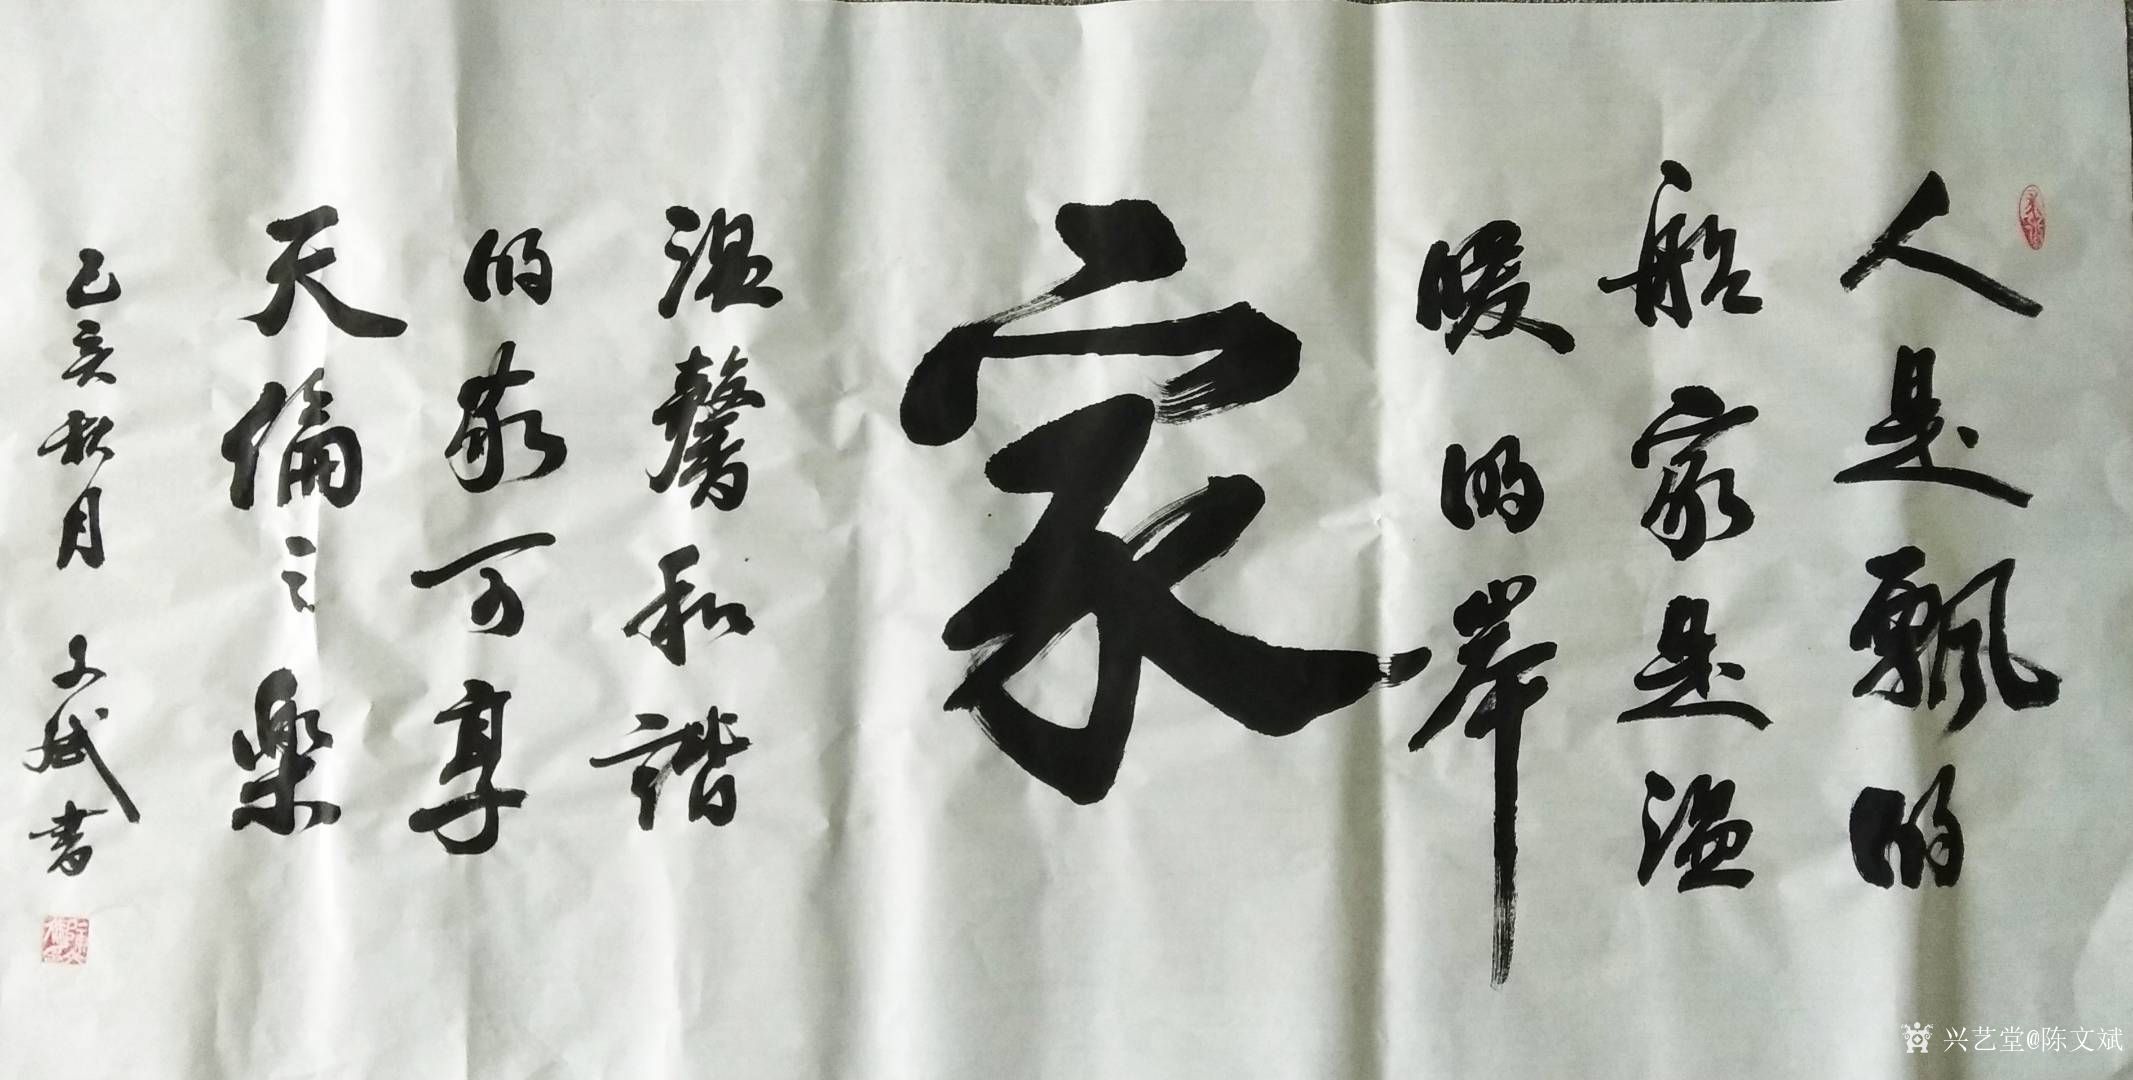 人是飘的
船家是温
暖的岸
家
温馨和谐
的家可享
天倫之樂
己亥秋月 文斌書
兴艺堂@陈文斌